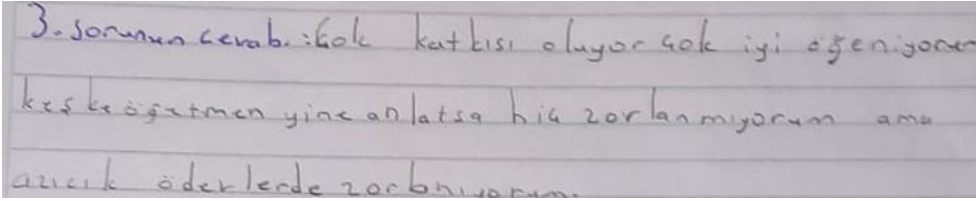 3. sorunun cevabı: Çok katkısı oluyor çok iyi öğeniyorum
keske öğretmen yine anlatsa hiç zorlanmıyorum ama
azıcık öderlerde zorlanıyorum.